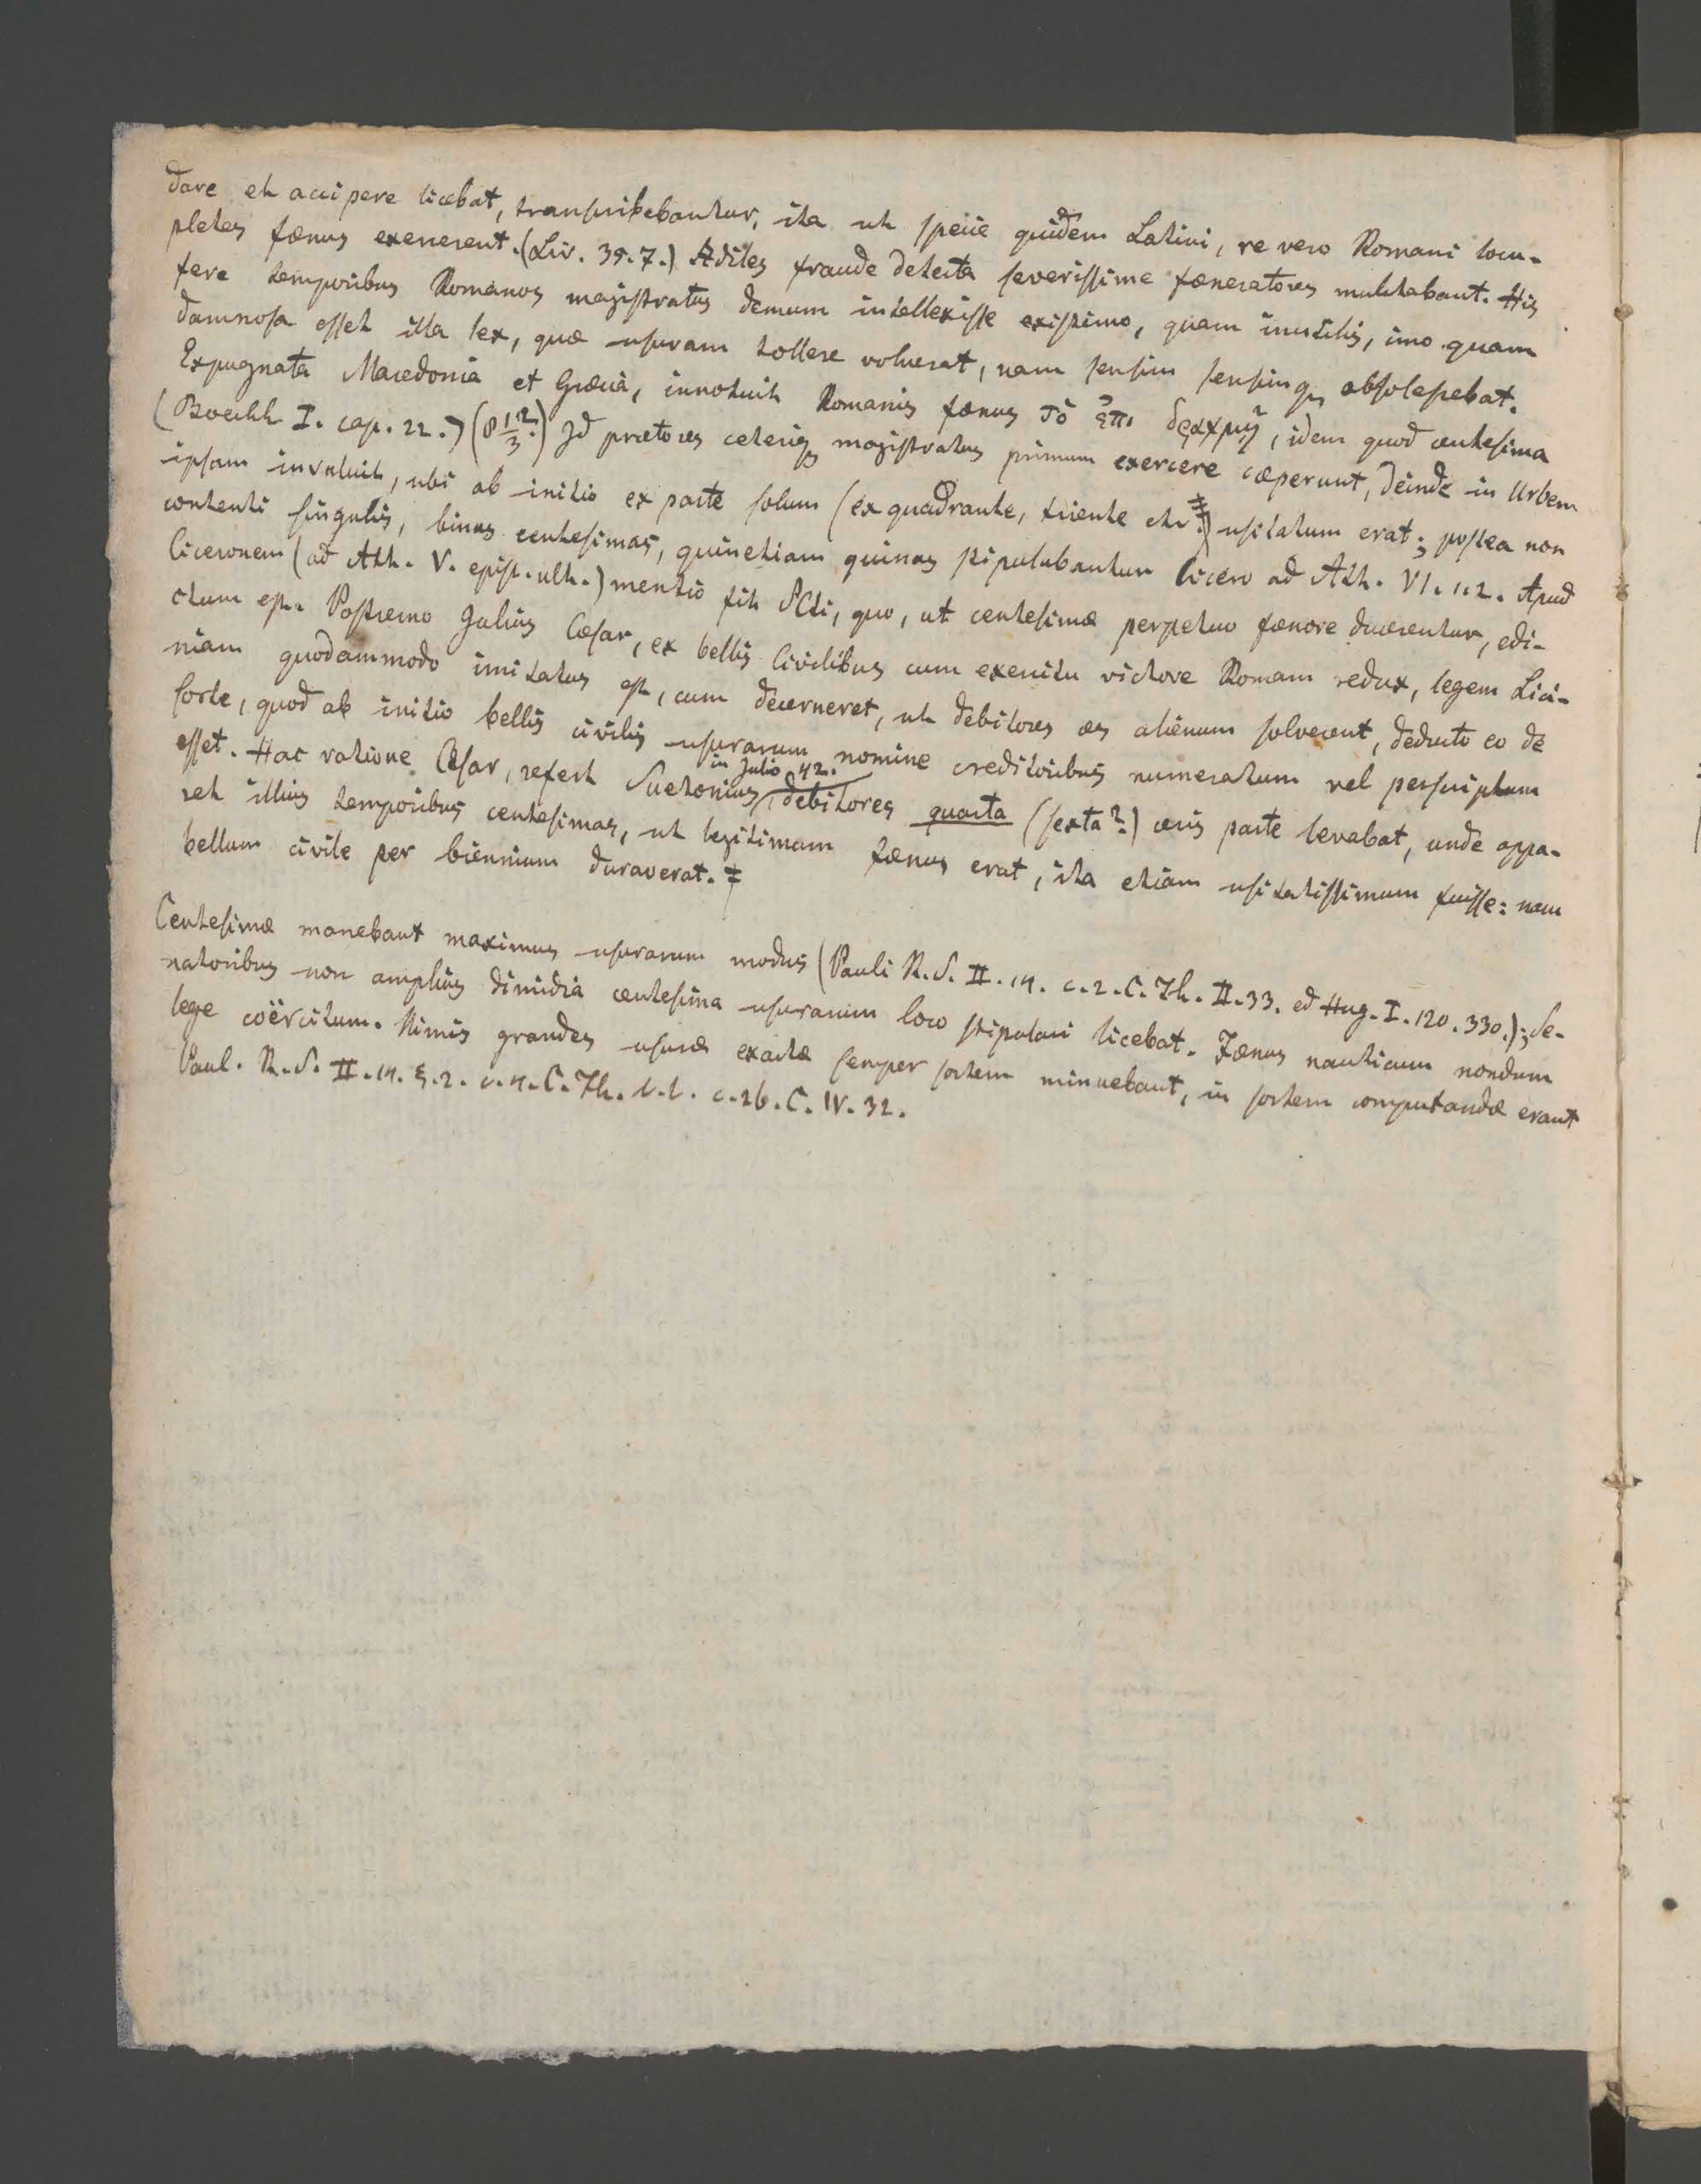 dare et accipere licebat, transscribebantur, ita ut specie quidem Latini, re vero Romani locu-
pletes fœnus exercerent. (Liv. 35. 7.) Ædiles fraude detecta severissime fœneratores mulctabant. His
fere temporibus Romanos magistratus demum intellexisse existimo, quam inutilis, imo quam
damnosa esset illa lex, quæ usuram tollere voluerat, nam sensim sensimq, obsolescebat.
Expugnata Macedonia et Græcia, innotuit Romanis fœnus τὸ ἐπι δραχμῇ, idem quod centesima
(Boeckh I. cap. 22.) (8 1/3 12?) Id prætores ceterisq magistratus primum exercere cœperunt, deinde in Urbem
ipsam invaluit, ubi ab initio ex parte solum (ex quadrante, triente etc.‡) usitatum erat; postea non
contenti singulis, binas centesimas, quinetiam quinas stipulabantur Cicero ad Att. VI. 1. 2. Apud
Ciceronem (ad Att. V. epist. ult.) mentio fit SCti, quo, ut centesimæ perpetuo fœnore ducerentur, edi-
ctum est. Postremo Julius Cæsar, ex bellis civilibus cum exercitu victore Romam redux, legem Lici-
niam quodammodo imitatus est, cum decerneret, ut debitores æs alienum solverent, deducto eo de
sorte, quod ab initio bellis civilis usurarum nomine creditoribus numeratum vel perscriptum
esset. Hac ratione Cæsar, refert Suetonius in Julio 42. debitores quarta (sexta?) æris parte levabat, unde appa-
ret illius temporibus centesimas, ut legitimam fœnus erat, ita etiam usitatissimum fuisse: nam
bellum civile per biennium duraverat. ‡
Centesimæ manebant maximus usurarum modus (Pauli R. S. II. 14. c. 2. C. Th. II. 33. ed Hug. I. 120. 330.); Se-
natoribus non amplius dimidia centesima usurarum loco stipulari licebat. Fœnus nauticum nondum
lege coërcitum. Nimis grandes usuræ exactæ semper sortem minuebant, in sortem computandæ erant
Paul. R. S. II. 14. §. 2. c. 4. C. Th. l. l. c. 26. C. IV. 32.